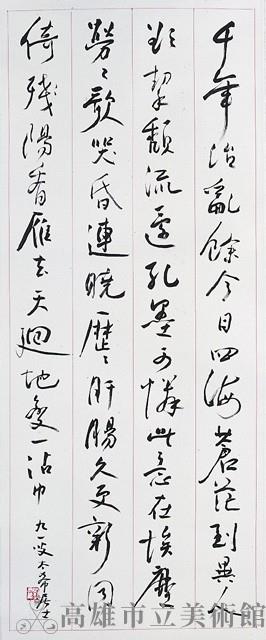 千年治亂餘今日四海蒼茫到異人
欲挈頹流還孔墨可憐此意在埃塵
勞勞歌哭昏連曉歷歷肝腸久更新同
倚殘陽看雁去天迴地變一沾巾
高雄市立美術館